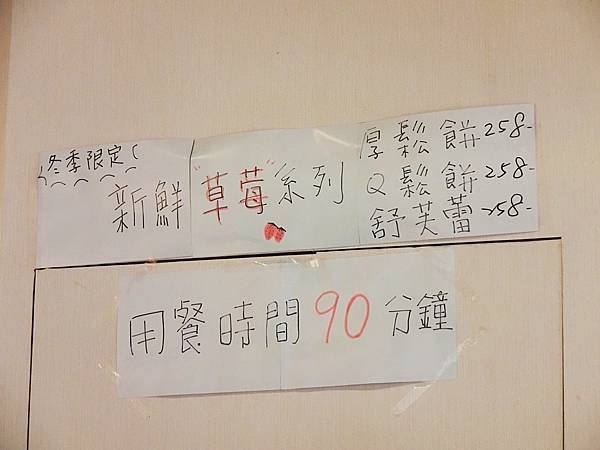 冬季限定
新鮮"草莓"系列
厚鬆餅258-
Q鬆餅258-
舒芙蕾258-
用餐時間90分鐘